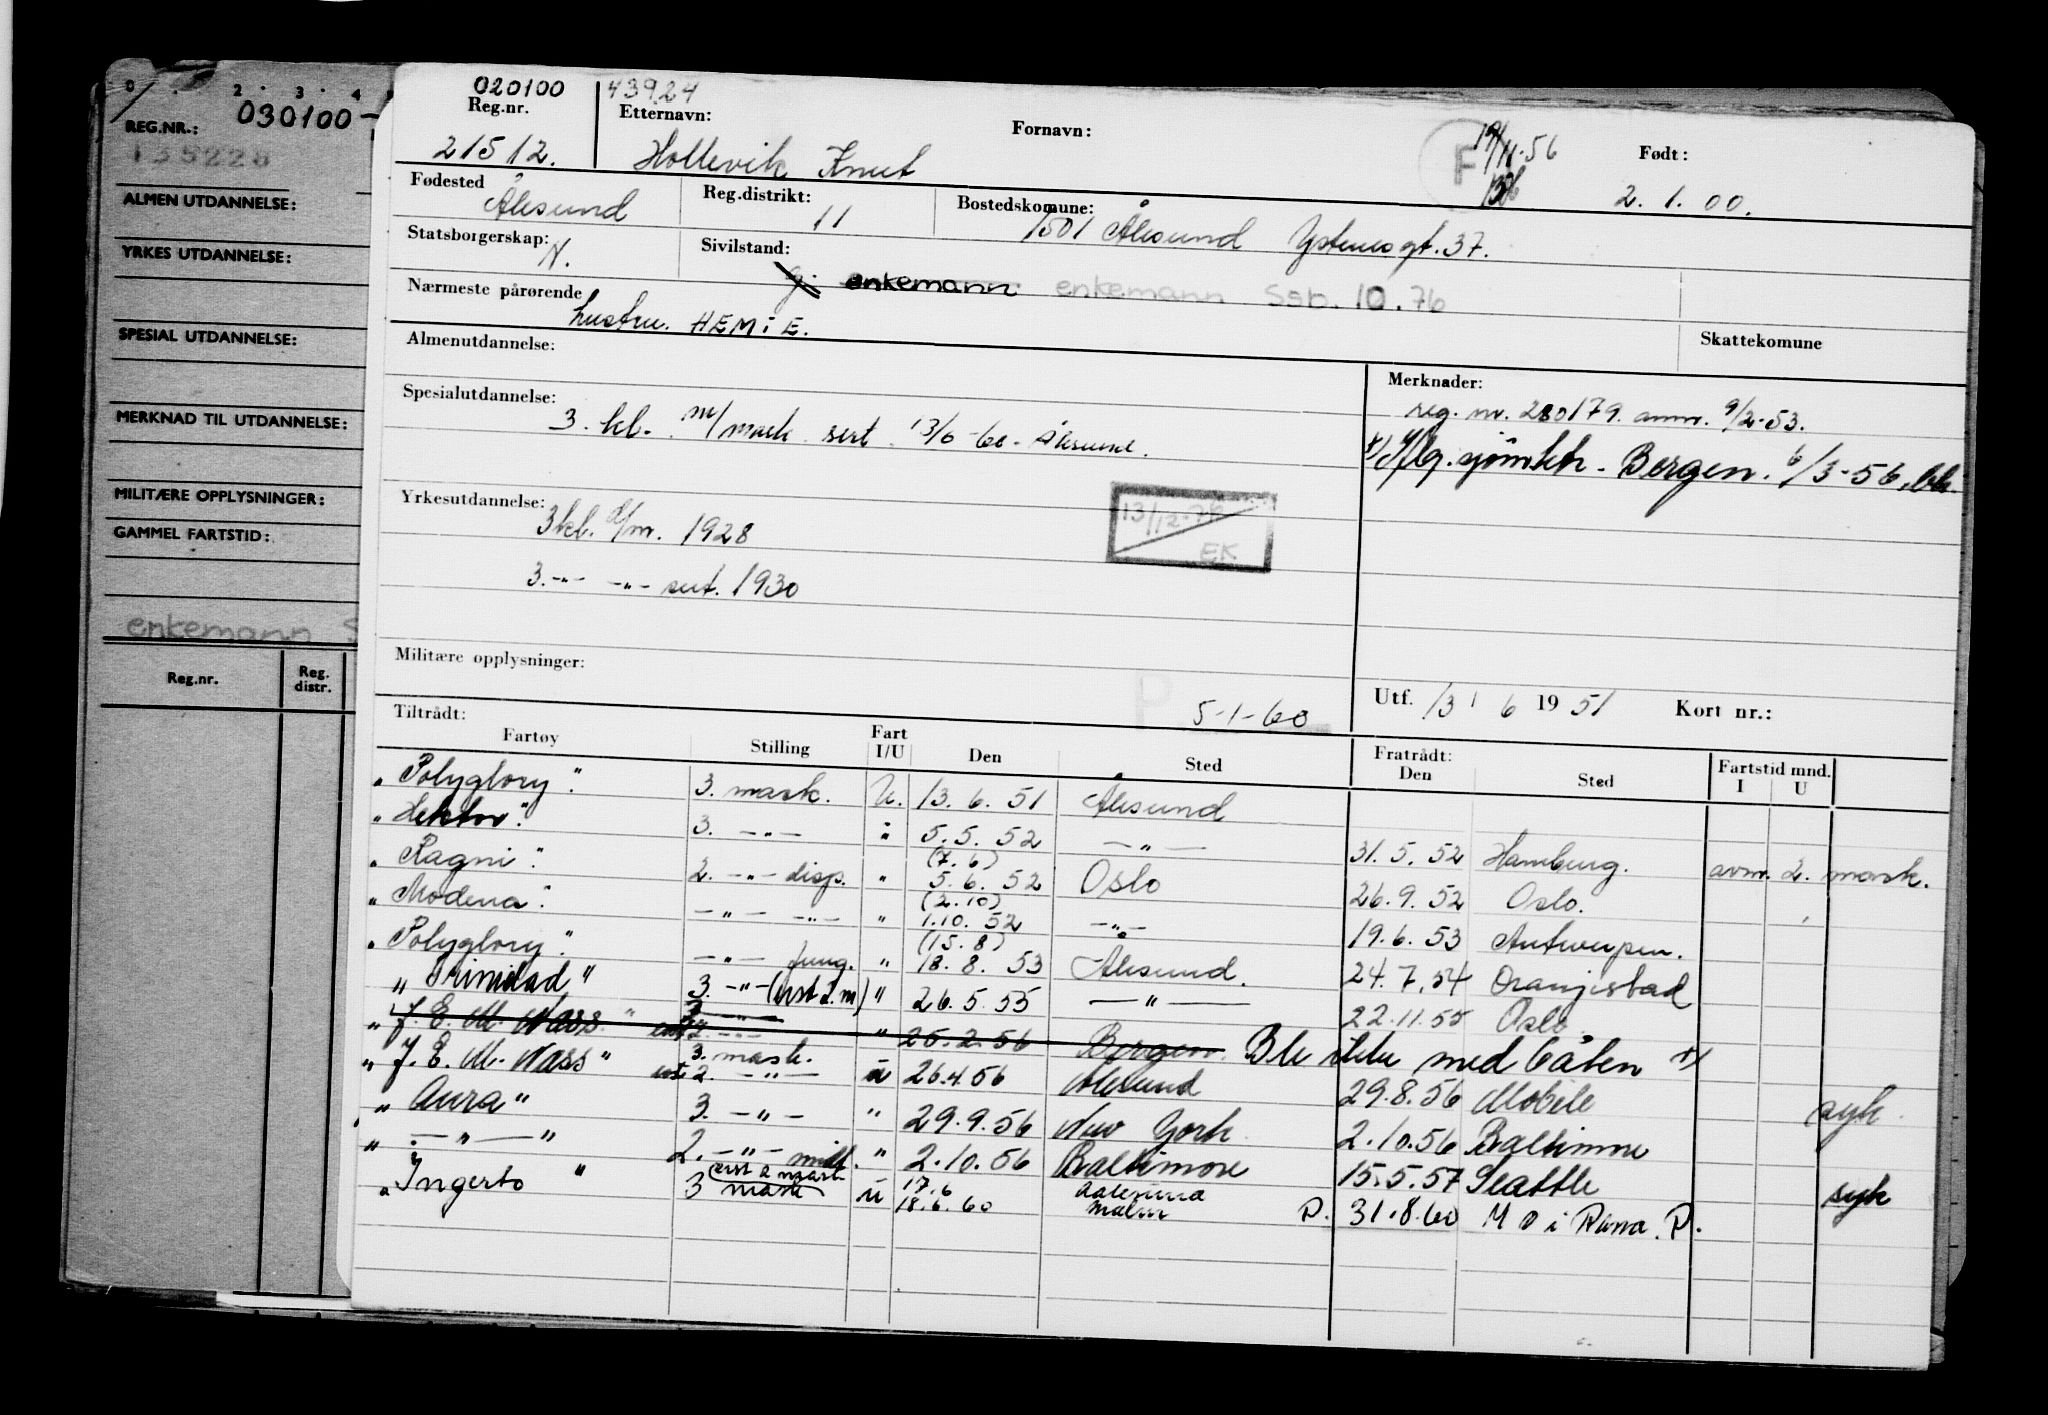 0 . 2 . 3 . 4
REG.NR.: 030100-
135228
ALMEN UTDANNELSE:
YRKES UTDANNELSE:
SPESIAL UTDANNELSE:
MERKNAD TIL UTDANNELSE:
MILITÆRE OPPLYSNINGER:
GAMMEL FARTSTID:
enkemann S
Reg.nr. Reg. distr.
020100 43924
Reg.nr. Etternavn: Fornavn: F 19/11-56 Født:
21512. Hollevik Knut 2.1.00.
Fødested Reg.distrikt: Bostedskomune:
Ålesund 11 1501 Ålesund Ystenesgt. 37.
Statsborgerskap: Sivilstand:
N. g. enkemann enkemann Ssb. 10.76
Nærmeste pårørende
hustru. HEMiE.
Skattekomune
Almenutdannelse:
Merknader:
reg. nr. 280179. anm. 9/2-53.
Spesialutdannelse:
3. kl. m/mask. sert. 13/6-60 - Ålesund.
x) Iflg. sjømktr. Bergen. 6/3-56,
Yrkesutdannelse:
3kl. d/m. 1928
3.-"- -"- sert. 1930
13/12-76
EK
Militære opplysninger:
P 5-1-60
Utf. 13/6 1951 Kort nr.:
Tiltrådt: Fratrådt:
Fartøy Stilling Fart I/U Den Sted Den Sted Fartstid mnd. I U
"Polyglory". 3. mask. U. 13.6.51 Ålesund
"Hektor". 3. -"- " 5.5.52 -"- 31.5.52 Hamburg. avm. 2. mask.
"Ragni". 2. -"- disp. " (7.6) 5.6.52 Oslo 26.9.52 Oslo.
"Modena". -"- -"- " (2.10) 1.10.52 -"- 19.6.53 Antwerpen.
"Polyglory". -"- fung. " (15.8) 18.8.53 Ålesund. 24.7.54 Oranjestad
"Trinidad" 3. -"- (erst 2.m) " 26.5.55 -"- 22.11.55 Oslo.
"J. E. M. Næss." 3 -"- erst 2. -"- " 25.2.56 Bergen. Ble ikke med båten x)
"J. E. M. Næss" 3. mask. erst 2. -"- u 26.4.56 Ålesund 29.8.56 Mobile syk.
"Aura" 3. -"- " 29.9.56 New York. 2.10.56 Baltimore
" -"- " 2. -"- midl. " 2.10.56 Baltimore 15.5.57 Seattle syk
"Ingerto" 3 mask erst 2 mask u 17.6 18.6.60 Aalesund Malm P. 31.8.60 M o i Rana. P.